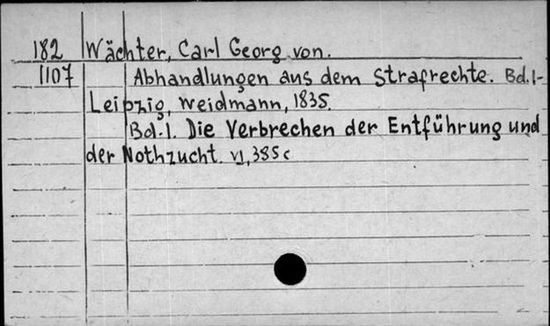 182 Wächter, Carl Georg von.
1107 Abhandlungen aus dem Strafrechte. Bd.1-
Leipzig, Weidmann, 1835.
Bd.1. Die Verbrechen der Entführung und
der Nothzucht. VI, 385